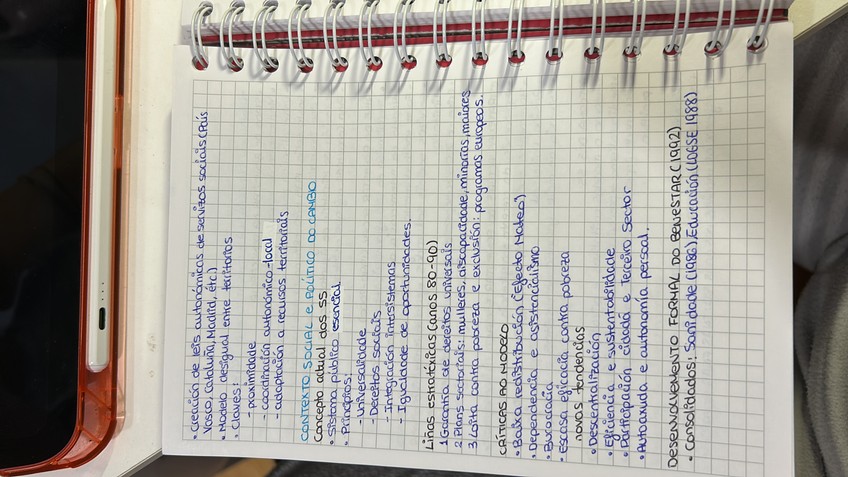 • Creación de leis autonómicas de servizos sociais (País
Vasco, Cataluña, Madrid, etc.)
• Modelo desigual entre territorios
• Claves:
- proximidade
- coordinación autonómico-local
- adaptación a recursos territoriais
CONTEXTO SOCIAL E POLÍTICO DO CAMBIO
Concepto actual dos SS
• Sistema público esencial
• Principios:
- Universalidade
- Dereitos sociais
- Integración intersistemas
- Igualdade de oportunidades.
Liñas estratéxicas (anos 80-90)
1 Garantía de dereitos universais
2 Plans sectoriais: mulleres, discapacidade, minorías, maiores
3. Loita contra pobreza e exclusión: programas europeos.
CRÍTICAS AO MODELO
• Baixa redistribución (Efecto Mateo)
• Dependencia e asistencialismo
• Burocracia
• Escasa eficacia contra pobreza
novas tendencias
• Descentralización
• Eficiencia e sustentabilidade
• Participación cidadá e Terceiro Sector
• Autoaxuda e autonomía persoal.
DESENVOLVEMENTO FORMAL DO BENESTAR (1992)
• Consolidados: Sanidade (1986), Educación (LOGSE 1988)